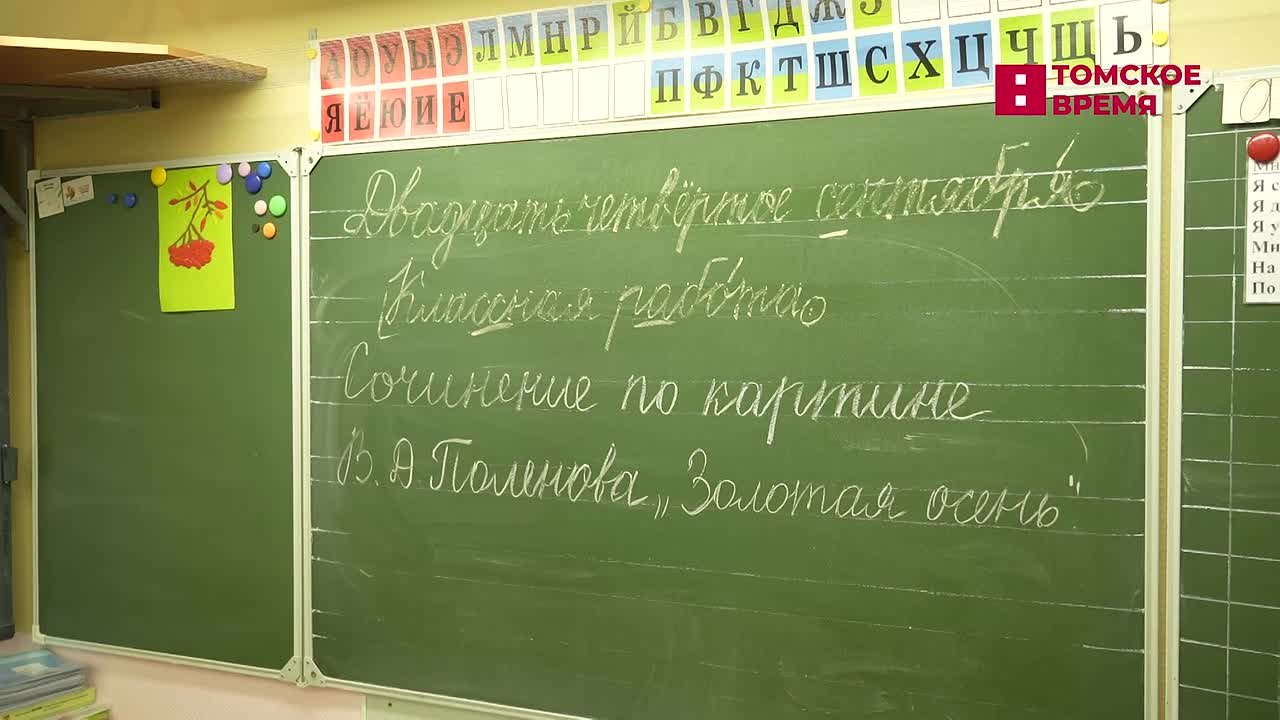 А О У Ы Э Л М Н Р Й Б В Г Д Ж З
Я Ё Ю И Е П Ф К Т Ш С Х Ц Ч Щ Ь
ТОМСКОЕ
ВРЕМЯ
Двадцать четвёртое сентября.
Классная работа.
Сочинение по картине
В. Д. Поленова „Золотая осень"
а
Я
Я
Я
Ми
На
По